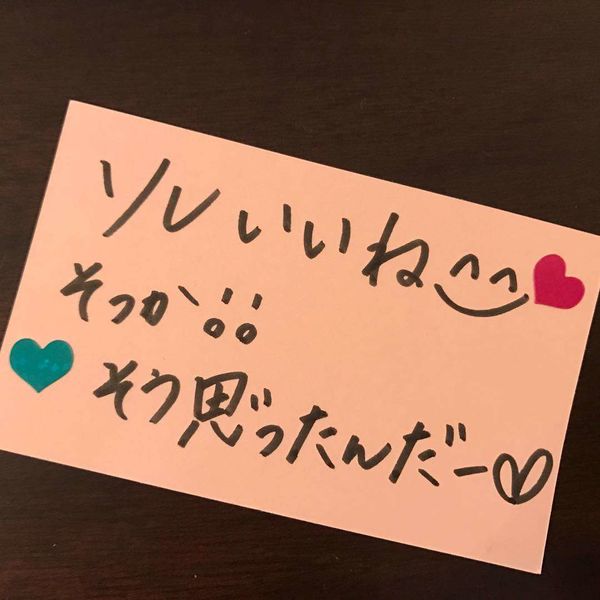 ソレいいね^^
そっか!!
そう思ったんだー♡